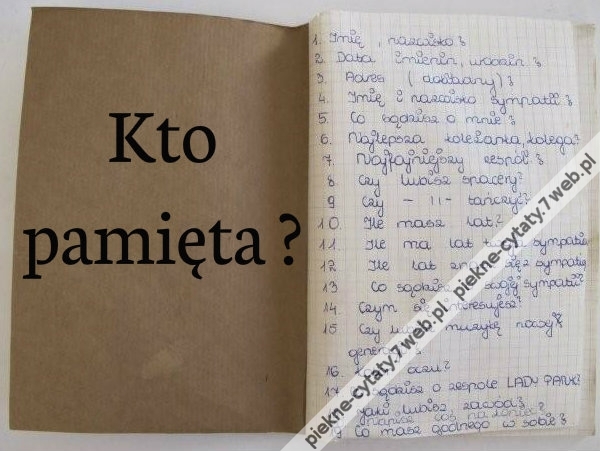 Kto
pamięta ?
1. Imię, nazwisko?
2. Data imienin, urodzin?
3. Adres (dokładny)?
4. Imię i nazwisko sympatii?
5 Co sądzisz o mnie?
6. Najlepsza koleżanka, kolega?
7. Najfajniejszy zespół?
8 Czy lubisz spacery?
9 Czy - 11 - tańczyć?
10. Ile masz lat?
11. Ile ma lat sympatia
12. Ile lat się z sympatią
13 Co sympatii?
14. Czym się interesujesz?
15 Czy muzykę
16. oczu?
17. sądzisz o zespole LADY PANK?
Jaki lubisz zawód?
napisz coś na koniec?
19 Co masz godnego w sobie?
piekne-cytaty.7web.pl piekne-cytaty.7web.pl